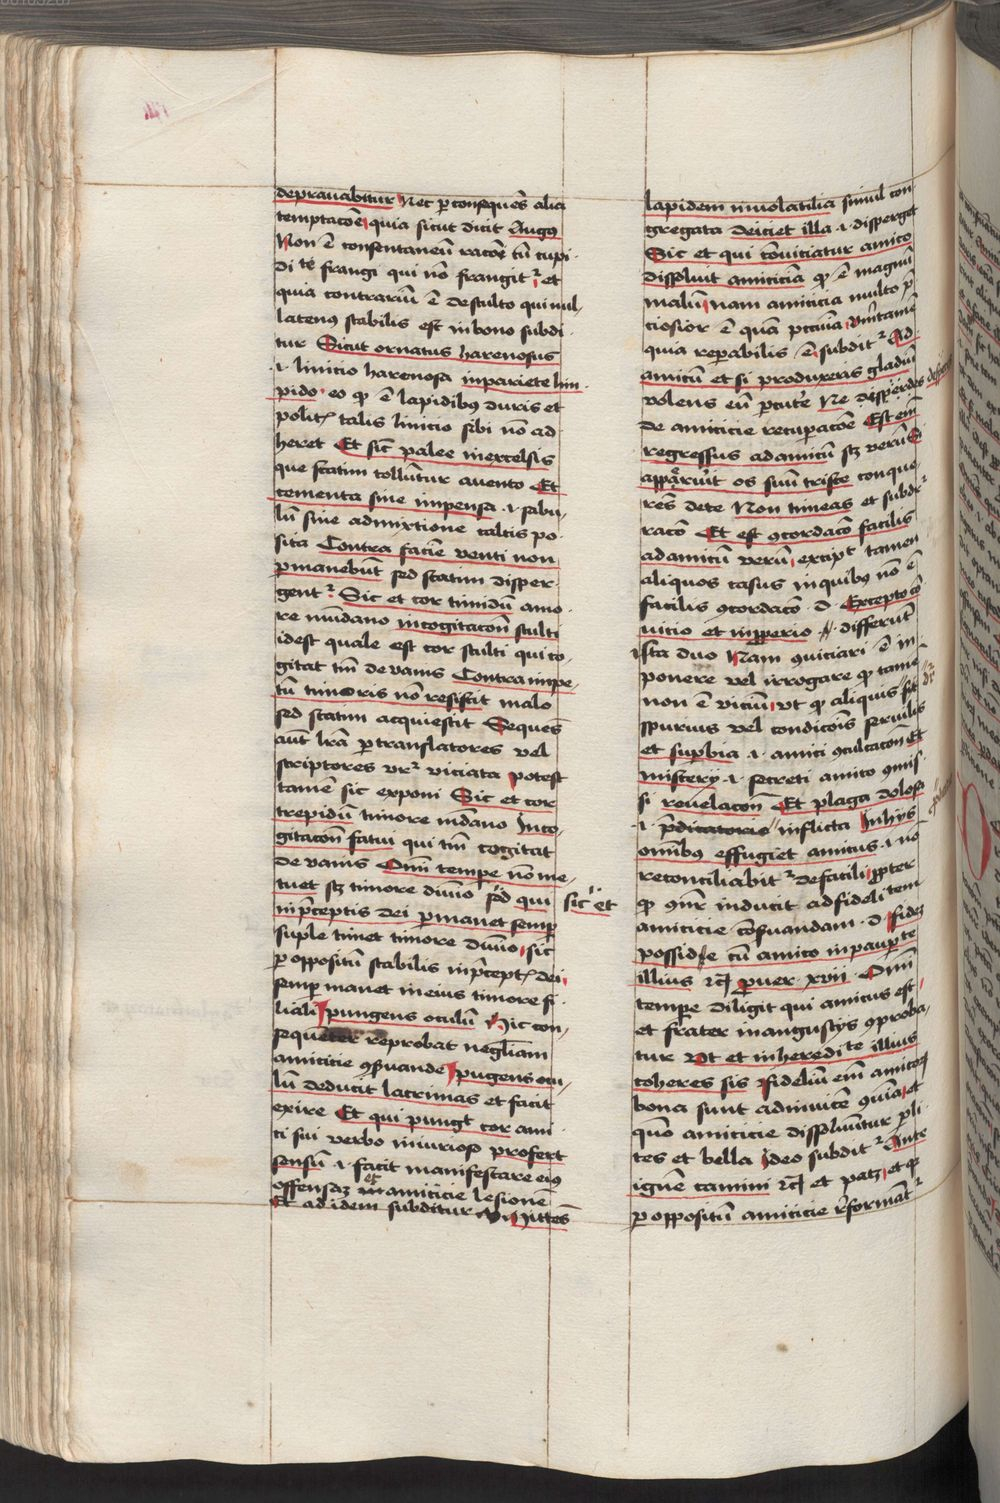 deprauabitur Nec p consequēs alia
temptacōe quia sicut dicit Augꝯ
Non ē consentaneū racōi tū cupi
di te frangi qui nō frangitᷣ et
quia contrariū ē de stulto qui nul
latenꝯ stabilis est in bono subdi
tur Sicut ornatus harenosus
.i. linicio harenosa in pariete lim
pido eo qꝫ ē lapidibꝯ duris et
politꝭ talis linicio sibi nō ad
heret Et sic palee in excelsis
que statim tolluntur a uento Et
cementa sine impensa .i. sabu
lū sine admixtione calcis po
sita Contra faciē venti non
pmanebūt sed statim disper
gentᷣ Sic et cor timidū amo
re mūdano in cogitacōn stulti
idest quale est cor stulti qui co
gitat tm̄ de vanis Contra impe
tū timoris nō resistit malo
sed statim acquiescit Sequēs
aūt lrā p translatores vel
scriptores vrᷣ viciata potest
tamē sic exponi Sic et cor
trepidū timore mdano In co
gitacōn fatui qui tm̄ cogitat
de vanis Omī tempe nō me
tuet sꝫ timore diuīo Sed qui sic et
in pceptis dei pmanet semp
suple timet timore diuīo sic
p oppositū stabilis in pceptꝭ dei
semp manet in eius timore fi
liali Pungens oculū Hic con
sequeter reprobat negliam
amicicie ꝯseruande pugens ocu
lū deducit lacrimas et facit
exire Et qui pungt cor ami
ci sui verbo iniurioso profert
sensū .i. facit manifestare eiꝯ
offensaꝫ et amicicie lesionē
Et ad idem subditur Mittēs
lapidem in volatilia simul con
gregata deiciet illa .i. disperget
Sic et qui cōuiciatur amico
dissoluit amiciciā qꝫ ē magnū
malū nam amicicia multo p
ciosior ē quā pccunia Vmtamē
quia repabilis ē subditᷣ Ad
amicū et si produxeris gladiū
volens eū pcutē Ne disperdes desperes
de amicicie recupacōe Est eī
regressus ad amicū sꝫ verū Si
apparuit os suū triste conque
rēs de te Non timeas et subdrᷣ
racō Et est ꝯcordacō facilis
ad amicū verū excipt tamen
aliquos casus in quibꝯ nō ē
facilis ꝯcordacō .d. Excepto cō
uicio et impperio differūt
ista duo Nam ꝯuiciari ē im
ponere vel irrogare qꝫ tamē
non ē viciū vt qꝫ aliquis sit drᷣ
spurius vel condicois seruilis
et supbia .i. amici ꝯculcacōn Et
misterij .i. secreti amico ꝯmis
si reuelacōn Et plaga dolosa
.i. pditatorie inflicta In hys
omībꝯ effugiet amicus .i. nō
reconciliabitᷣ de facili ppter
qꝫ ꝯnr inducit ad fideli tem
amicicie cōseruandam .d. fideꝫ
posside cū amico in paupte
illius rcꝫ puer xvii Omī
tempe diligit qui amicus est
et frater in angustijs ꝯproba
tur Vt et in heredi te illius
coheres sis Fideliū eī amicoꝝ
bona sunt ad inuicē ꝯmunia et
quō amicicie dissoluuntur p li
tes et bella Ideo subditᷣ Ante
ignē camini rcꝫ et patꝫ et qꝫ
p oppositū amicicie reformantᷣ